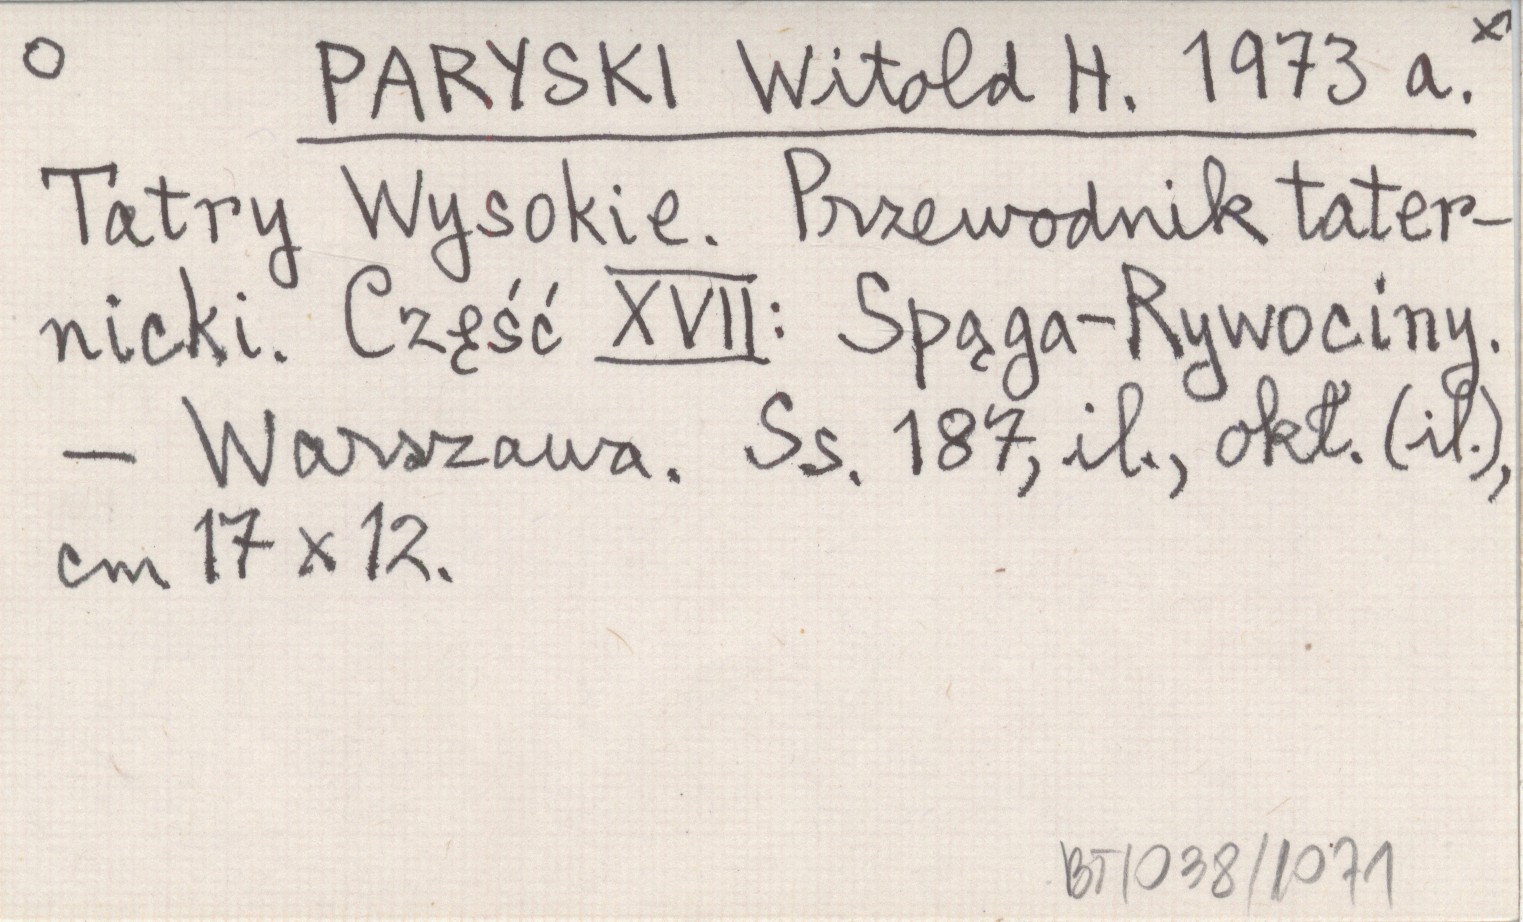 O PARYSKI Witold H. 1973 a. x
Tatry Wysokie. Przewodnik tater-
nicki. Część XVII: Spąga-Rywociny.
— Warszawa. Ss. 187, il., okł. (il.),
cm 17 x 12.
BT/038/1071